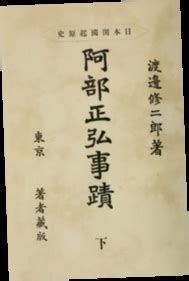 日本開國起原史
渡邊修二郎著
阿部正弘事蹟
下
東京
著者藏版